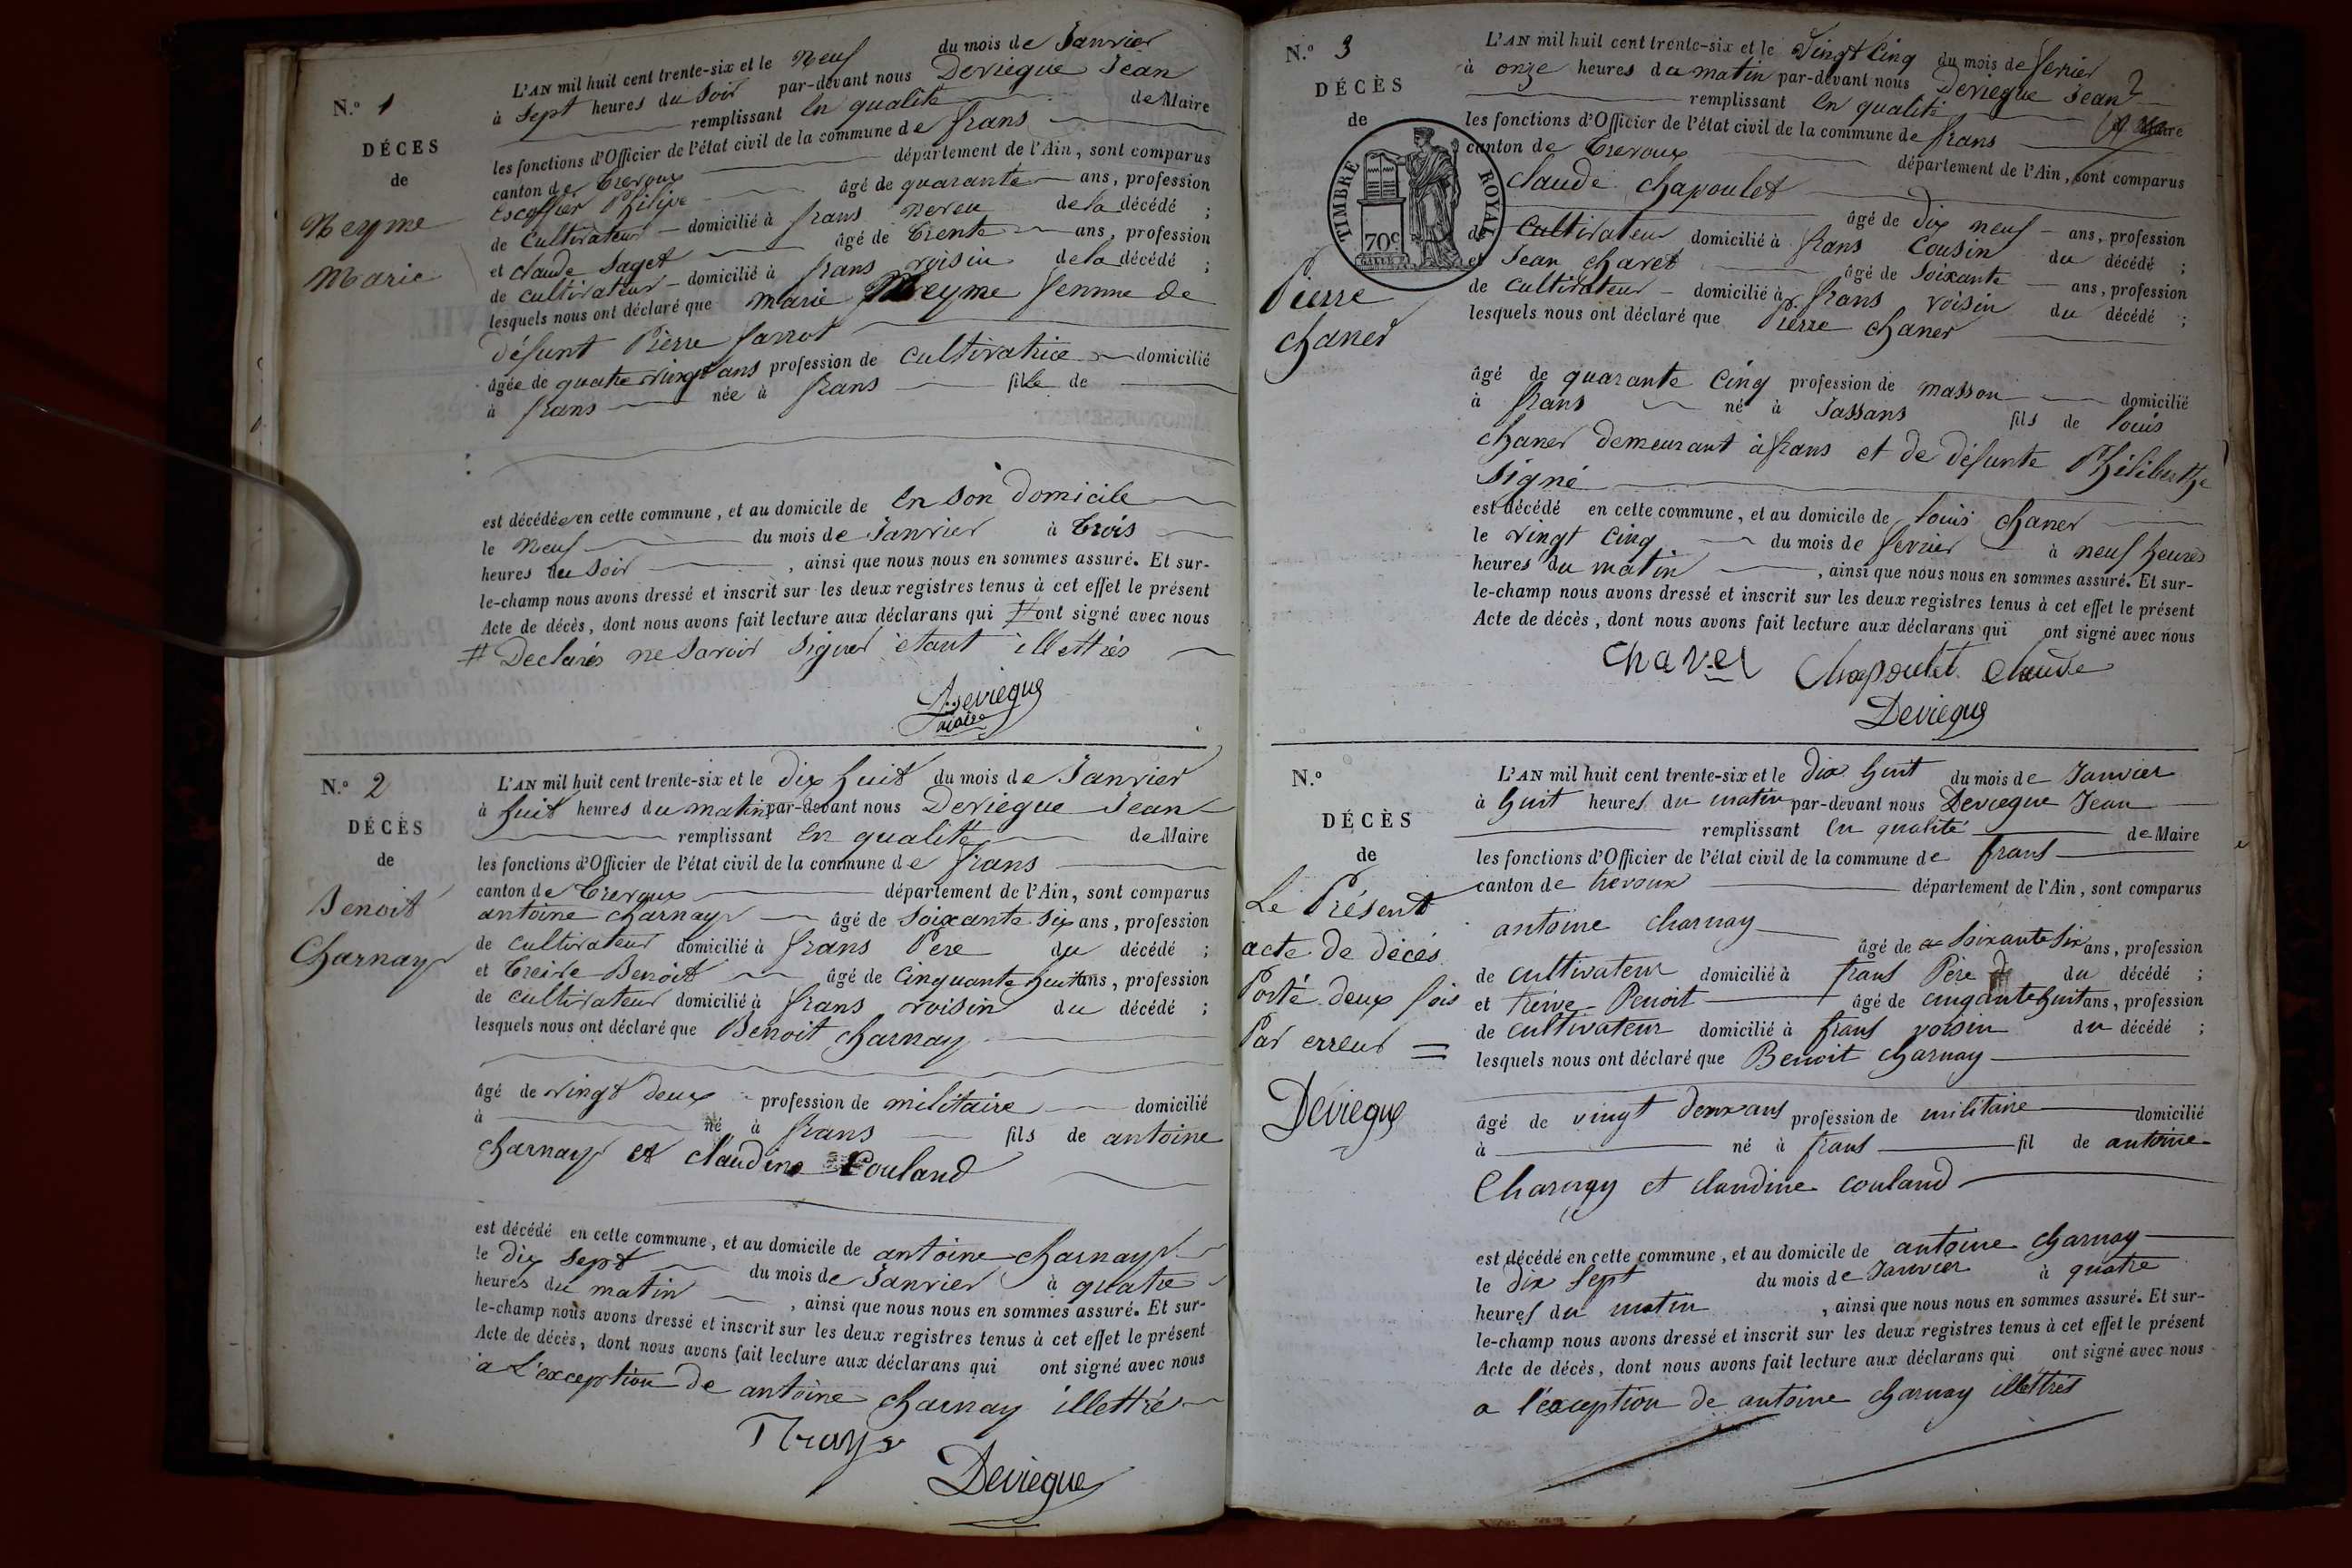 N.º 1
DÉCES
de
Neyme
Marie
L'AN mil huit cent trente-six et le Neuf du mois de Janvier
à Sept heures du Soir par-devant nous Deviegue Jean
remplissant En qualité de Maire
les fonctions d'Officier de l'état civil de la commune de frans
canton de Trevoux département de l'Ain, sont comparus
Escoffier Philipe âgé de quarante ans, profession
de Cultivateur domicilié à frans neveu de la décédé ;
et claude Saget âgé de Trente ans, profession
de cultivateur domicilié à frans voisin de la décédé ;
lesquels nous ont déclaré que marie Neyme femme de
défunt Pierre
âgée de quatre vingt ans profession de cultivatrice domicilié
à frans née à frans fille de
est décédée en cette commune, et au domicile de En Son Domicile
le Neuf du mois de Janvier à Trois
heures du Soir , ainsi que nous nous en sommes assuré. Et sur-
le-champ nous avons dressé et inscrit sur les deux registres tenus à cet effet le présent
Acte de décès, dont nous avons fait lecture aux déclarans qui # ont signé avec nous
# Declarés ne Savoir Signer étant illettrés
Deviegue
maire
N.º 2
DÉCÈS
de
Benoit
Charnay
L'AN mil huit cent trente-six et le dix huit du mois de Janvier
à huit heures du matin par-devant nous Deviegue Jean
remplissant En qualité de Maire
les fonctions d'Officier de l'état civil de la commune de frans
canton de Trevoux département de l'Ain, sont comparus
antoine charnay âgé de Soixante Six ans, profession
de cultivateur domicilié à frans Pere du décédé ;
et Treive Benoit âgé de Cinquante huit ans, profession
de cultivateur domicilié à frans voisin du décédé ;
lesquels nous ont déclaré que Benoit charnay
âgé de vingt deux profession de militaire domicilié
à né à frans fils de antoine
charnay et claudine Couland
est décédé en cette commune, et au domicile de antoine charnay
le Dix Sept du mois de Janvier à quatre
heures du matin , ainsi que nous nous en sommes assuré. Et sur-
le-champ nous avons dressé et inscrit sur les deux registres tenus à cet effet le présent
Acte de décès, dont nous avons fait lecture aux déclarans qui ont signé avec nous
a L'exception de antoine charnay illettré
Deviegue
N.º 3
DÉCÈS
de
TIMBRE ROYAL
70c
Pierre
chaner
L'AN mil huit cent trente-six et le Vingt Cinq du mois de fevrier
à onze heures du matin par-devant nous Deviegue Jean
remplissant En qualité de Maire
les fonctions d'Officier de l'état civil de la commune de frans
canton de Trevoux département de l'Ain, sont comparus
Claude chapoulet
âgé de dix neuf ans, profession
de Cultivateur domicilié à frans Cousin du décédé ;
et Jean chavet âgé de Soixante ans, profession
de cultivateur domicilié à frans voisin du décédé ;
lesquels nous ont déclaré que Pierre chaner
âgé de quarante Cinq profession de masson domicilié
à frans né à Jassans fils de louis
chaner demeurant à frans et de défunte Philiberthe
Signé
est décédé en cette commune, et au domicile de louis chaner
le vingt Cinq du mois de fevrier à neuf heures
heures du matin , ainsi que nous nous en sommes assuré. Et sur-
le-champ nous avons dressé et inscrit sur les deux registres tenus à cet effet le présent
Acte de décès, dont nous avons fait lecture aux déclarans qui ont signé avec nous
Chavet Chapoulet Claude
Deviegue
N.º
DÉCÈS
de
Le Présent
acte de décés
Porté deux fois
Par erreur
Deviegue
L'AN mil huit cent trente-six et le Dix huit du mois de Janvier
à huit heures du matin par-devant nous Deviegue Jean
remplissant En qualité de Maire
les fonctions d'Officier de l'état civil de la commune de frans
canton de trevoux département de l'Ain, sont comparus
antoine charnay
âgé de Soixante Six ans, profession
de cultivateur domicilié à frans Père du décédé ;
et treive Benoit âgé de cinqante huit ans, profession
de cultivateur domicilié à frans voisin du décédé ;
lesquels nous ont déclaré que Benoit charnay
âgé de vingt deux ans profession de militaire domicilié
à né à frans fil de antoine
Charnay et claudine couland
est décédé en cette commune, et au domicile de antoine charnay
le dix sept du mois de Janvier à quatre
heures du matin , ainsi que nous nous en sommes assuré. Et sur-
le-champ nous avons dressé et inscrit sur les deux registres tenus à cet effet le présent
Acte de décès, dont nous avons fait lecture aux déclarans qui ont signé avec nous
a l'éxception de antoine charnay illéttrés